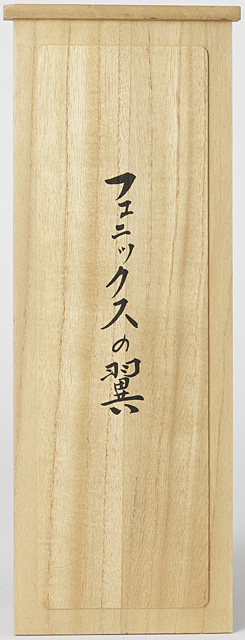 フェニックスの翼